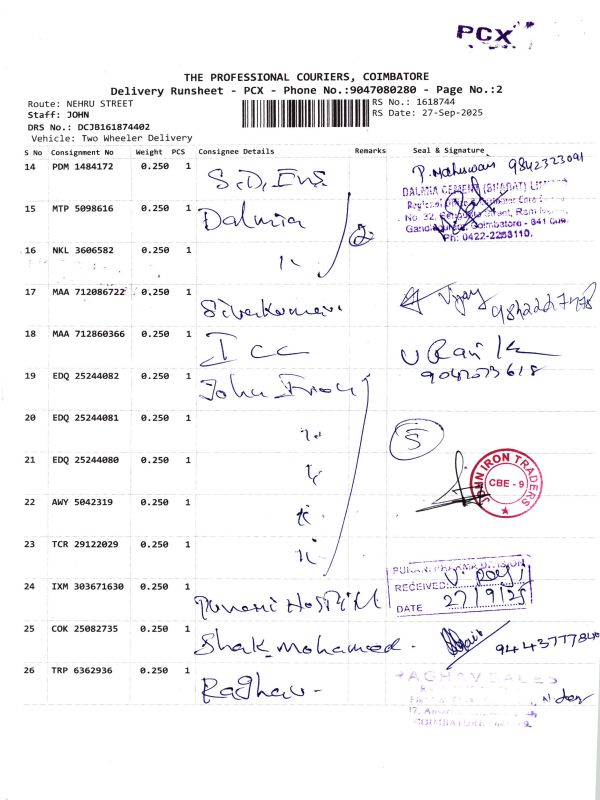 PCX
THE PROFESSIONAL COURIERS, COIMBATORE
Delivery Runsheet - PCX - Phone No.:9047080280 - Page No.:2
Route: NEHRU STREET
RS No.: 1618744
Staff: JOHN
RS Date: 27-Sep-2025
DRS No.: DCJB161874402
Vehicle: Two Wheeler Delivery
S No Consignment No Weight PCS Consignee Details Remarks Seal & Signature
14 PDM 1484172 0.250 1 9842323091
DALMIA CEMENT (BHARAT) LIMITED
15 MTP 5098616 0.250 1 Dalmia
No. 32,
Coimbatore - 641
Ph: 0422-2283110.
16 NKL 3606582 0.250 1 " 2
17 MAA 712086722 0.250 1 Sivakumar Vijay
18 MAA 712860366 0.250 1 ICC
19 EDQ 25244082 0.250 1 John Iron
20 EDQ 25244081 0.250 1 "
5
21 EDQ 25244080 0.250 1 "
JOHN IRON TRADERS
CBE - 9
22 AWY 5042319 0.250 1 "
23 TCR 29122029 0.250 1 "
24 IXM 303671630 0.250 1
RECEIVED
DATE 27/9/25
25 COK 25082735 0.250 1 Shak Mohamed.
26 TRP 6362936 0.250 1 Raghav
RAGHAV SALES